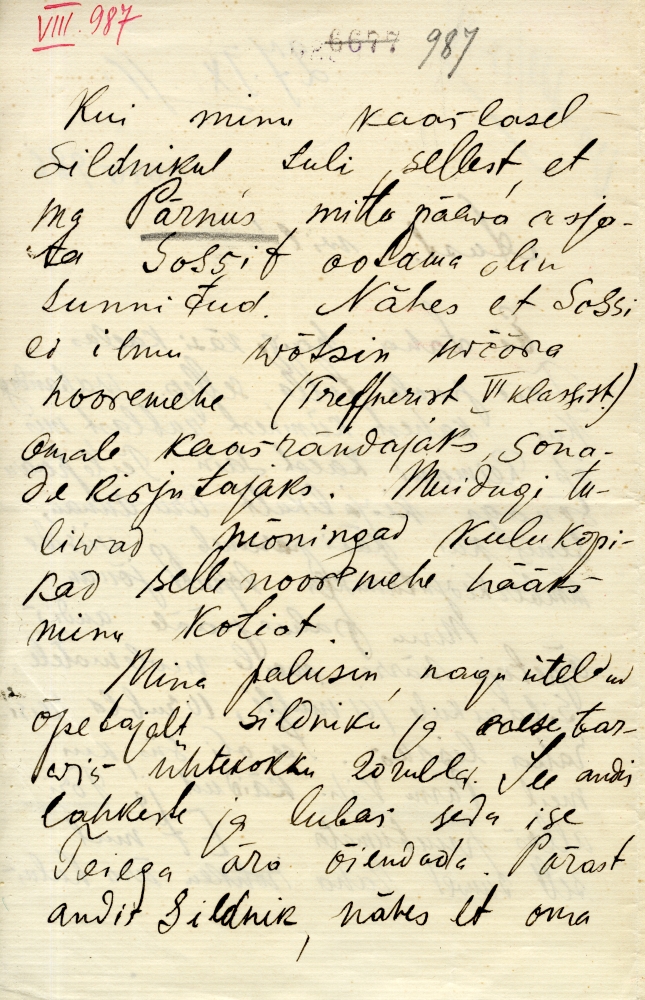 VIII. 987
6677 987
Kui minu kaaslasel
Sildnikul tuli sellest, et
ma Pärnus mitu päewa asja-
ta Sossit ootama olin
sunnitud. Nähes et Sossi
ei ilmu, wõtsin wõõra
nooremehe (Treffnerist VI klassist)
omale kaasrändajaks, sõna-
de kirjutajaks. Muidugi tu-
liwad mõningad kulukopi-
kad selle nooremehe hääks
minu kotist.
Mina palusin, nagu üteldud
õpetajalt Sildniku ja tar-
wis ühtekokku 20 rubla. See andis
lahkeste ja lubas seda ise
Teiega ära õiendada. Pärast
andis Sildnik, nähes et oma